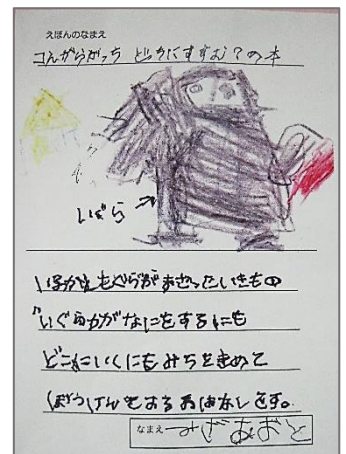 えほんのなまえ
コんがらがっち どっちにすすむ?の本
いぐら→
いるかともぐらがまざったいきもの
"いぐら"がなにをするにも
どこにいくにもみちをきめて
ぼうけんをするおはなしです。
なまえ